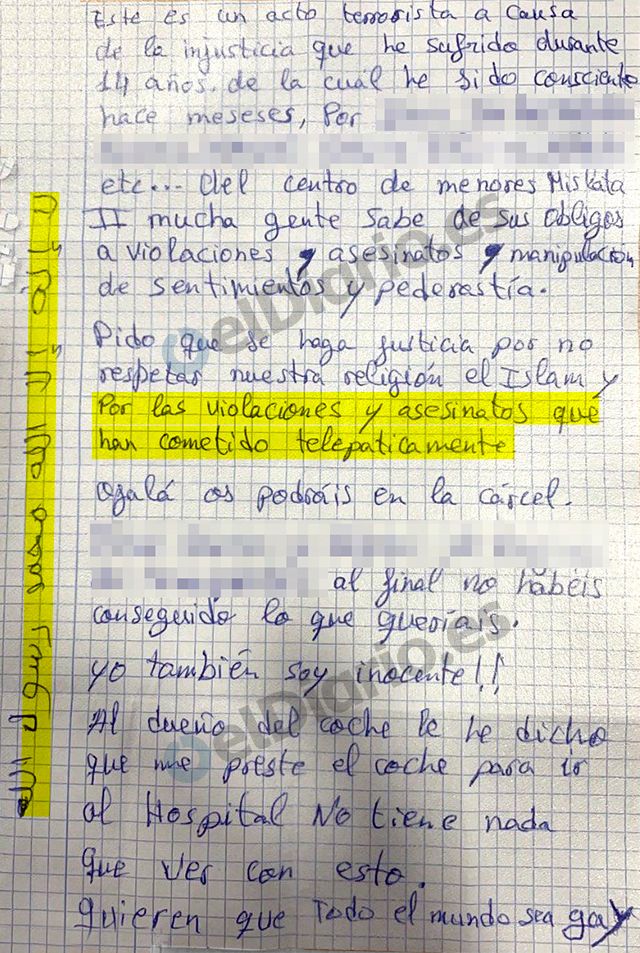 Este es un acto terrorista a causa
de la injusticia que he sufrido durante
14 años. de la cual he sido consciente
hace meseses, Por
etc... del centro de menores Mislata
II mucha gente sabe de sus obligos
a violaciones y asesinatos y manipulación
de sentimientos y pederastía.
Pido que se haga justicia por no
respetar nuestra religión el Islam y
Por las violaciones y asesinatos que
han cometido telepaticamente
Ogalá os podráis en la cárcel.
al final no habéis
conseguido lo que queríais.
yo también soy inocente!!
Al dueño del coche le he dicho
que me preste el coche para ir
al Hospital No tiene nada
que ver con esto.
quieren que Todo el mundo sea gay
elDiario.es
elDiario.es